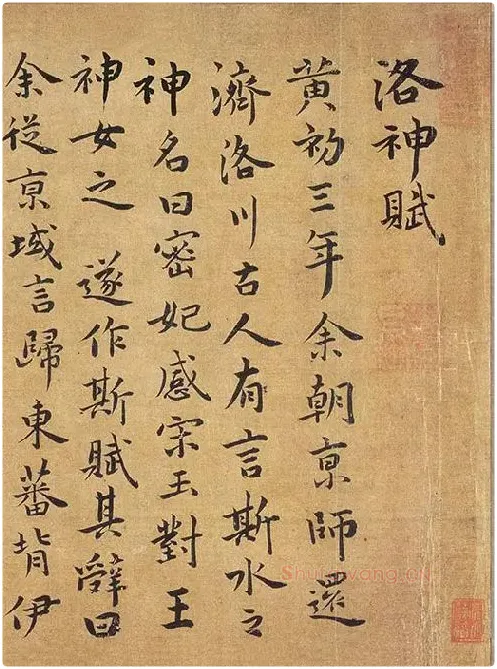 洛神賦
黄初三年余朝京師還
濟洛川古人有言斯水之
神名曰密妃感宋玉對王
神女之遂作斯賦其辭曰
余從京域言歸東蕃背伊